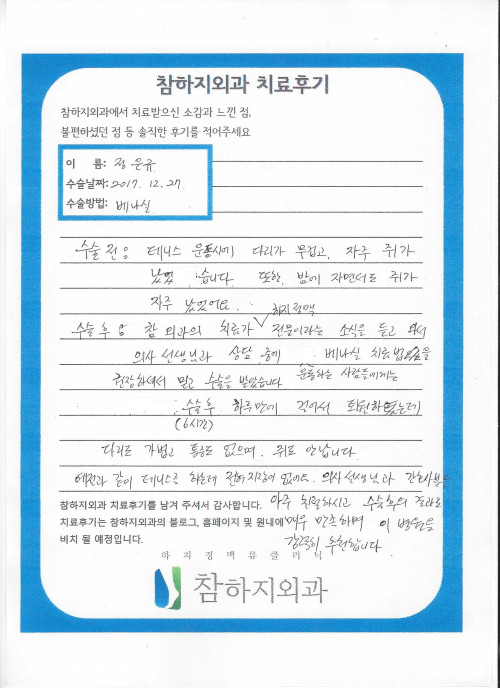 참하지외과 치료후기
참하지외과에서 치료받으신 소감과 느낀 점,
불편하셨던 점 등 솔직한 후기를 적어주세요
이 름: 정은규
수술날짜: 2017. 12. 27.
수술방법: 베나실
수술 전 : 테니스 운동시에 다리가 무겁고, 자주 쥐가
났었습니다. 또한, 밤에 자면서도 쥐가
자주 났었어요.
하지정맥
수술 후 : 참 외과의 치료가 전문이라는 소식을 듣고 와서
의사 선생님과 상담 중에 베나실 치료법을
운동하는 사람들에게는
권장하셔서 믿고 수술을 받았습니다
수술후 하루만에 걸어서 퇴원하였는데
(6시간)
다리도 가볍고 통증도 없으며, 쥐도 안납니다.
예전과 같이 테니스를 하는데 전혀 지장이 없어요. 의사선생님과 간호사분들
아주 친절하시고 수술후의 결과도
매우 만족하며 이 병원을
강력히 추천합니다
참하지외과 치료후기를 남겨 주셔서 감사합니다.
치료후기는 참하지외과의 블로그, 홈페이지 및 원내에
비치 될 예정입니다.
하지정맥류클리닉
참하지외과